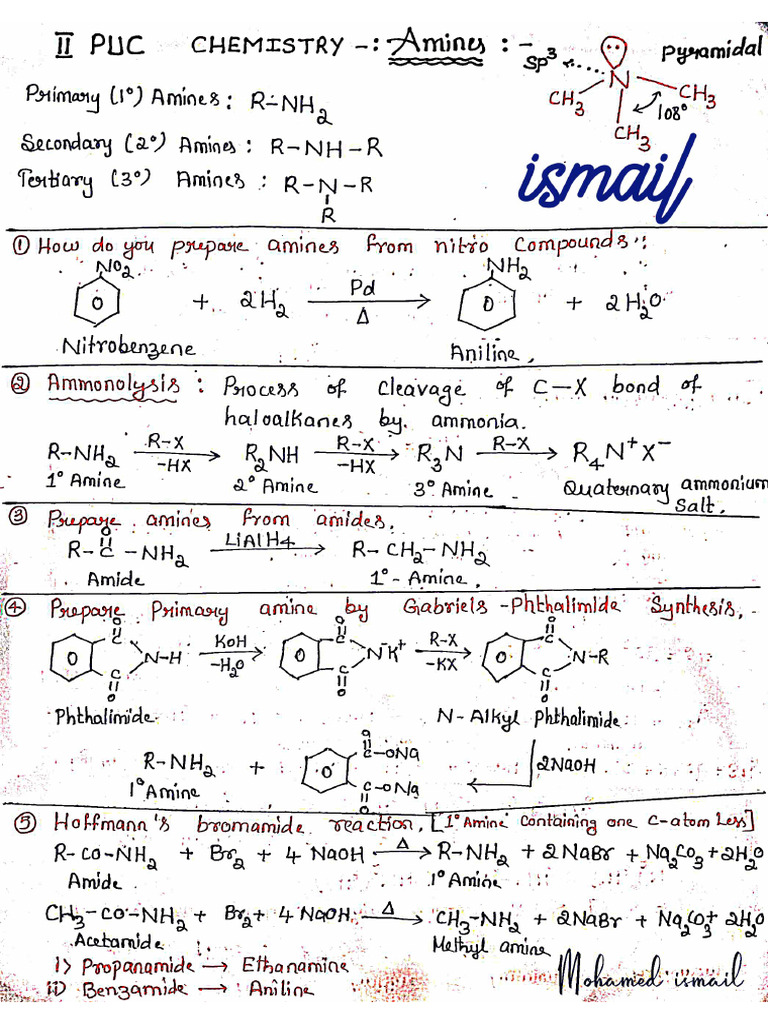 II PUC CHEMISTRY -: Amines :-
SP3 N pyramidal
CH3 CH3 108°
CH3
Primary (1°) Amines : R-NH2
Secondary (2°) Amines : R-NH-R
Tertiary (3°) Amines : R-N-R
R
ismail
① How do you prepare amines from nitro compounds:
NO2 NH2
+ 2H2 Pd Δ → + 2H2O
Nitrobenzene Aniline,
② Ammonolysis : Process of cleavage of C-X bond of
haloalkanes by ammonia.
R-NH2 R-X -HX → R2NH R-X -HX → R3N R-X → R4N+X-
1° Amine 2° Amine 3° Amine Quaternary ammonium
Salt,
③ Prepare amines from amides.
O
R-C-NH2 LiAlH4 → R-CH2-NH2
Amide 1°-Amine,
④ Prepare Primary amine by Gabriels-Phthalimide Synthesis,
O O O
C C C
O N-H KOH -H2O → O N-K+ R-X -KX → O N-R
C C C
O O O
Phthalimide N-Alkyl Phthalimide
O
R-NH2 + O C-ONa 2NaOH
1° Amine C-ONa
O
⑤ Hoffmann's bromamide reaction, [1° Amine containing one C-atom Less]
R-CO-NH2 + Br2 + 4 NaOH Δ → R-NH2 + 2NaBr + Na2CO3 + 2H2O
Amide 1° Amine
CH3-CO-NH2 + Br2 + 4 NaOH Δ → CH3-NH2 + 2NaBr + Na2CO3 + 2H2O
Acetamide Methyl amine
i) Propanamide → Ethanamine
ii) Benzamide → Aniline
Mohamed ismail